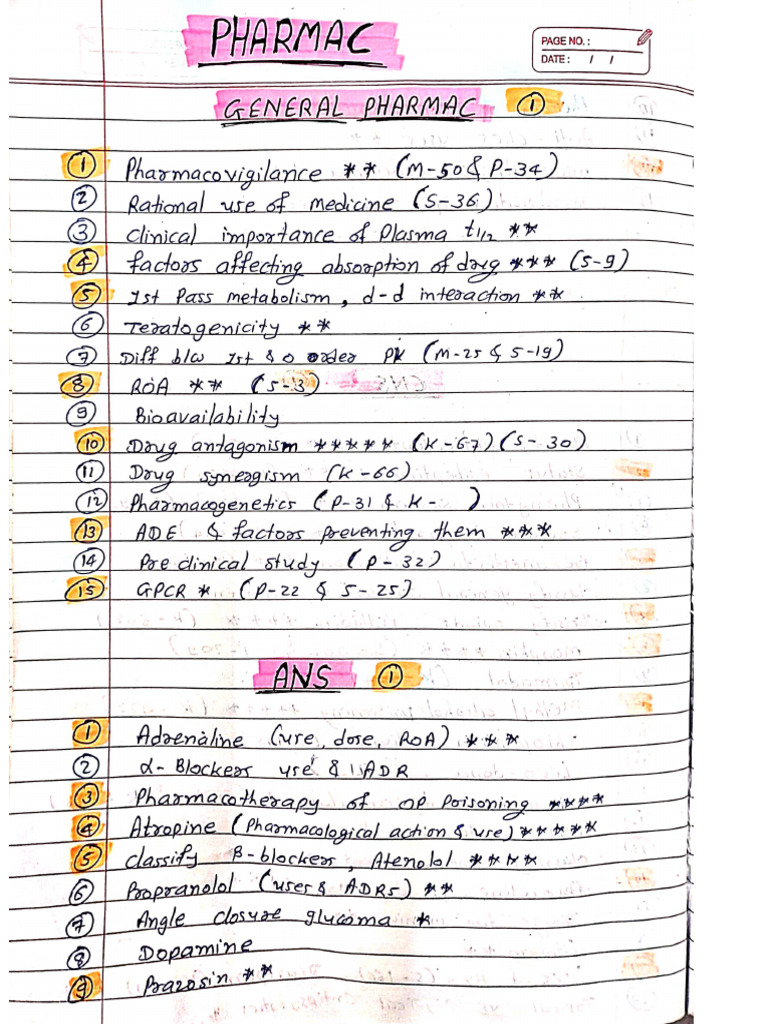 PHARMAC
PAGE NO.:
DATE: / /
GENERAL PHARMAC ①
① Pharmacovigilance ** (M-50 & P-34)
② Rational use of medicine (S-36)
③ Clinical importance of Plasma t1/2 **
④ factors affecting absorption of drug *** (S-9)
⑤ 1st Pass metabolism, d-d interaction **
⑥ Teratogenicity **
⑦ Diff b/w 1st & 0 order PK (M-25 & S-19)
⑧ ROA ** (S-13)
⑨ Bioavailability
⑩ Drug antagonism ***** (K-67) (S-30)
⑪ Drug synergism (K-66)
⑫ Pharmacogenetics (P-31 & K- )
⑬ ADE & factors preventing them ***
⑭ Pre clinical study (P-32)
⑮ GPCR * (P-22 & S-25)
ANS ①
① Adrenaline (use, dose, ROA) ***
② α-Blockers use & ADR
③ Pharmacotherapy of OP Poisoning ****
④ Atropine (Pharmacological action & use) *****
⑤ classify B-blockers, Atenolol ****
⑥ Propranolol (uses & ADRs) **
⑦ Angle closure glucoma *
⑧ Dopamine
⑨ Prazosin **